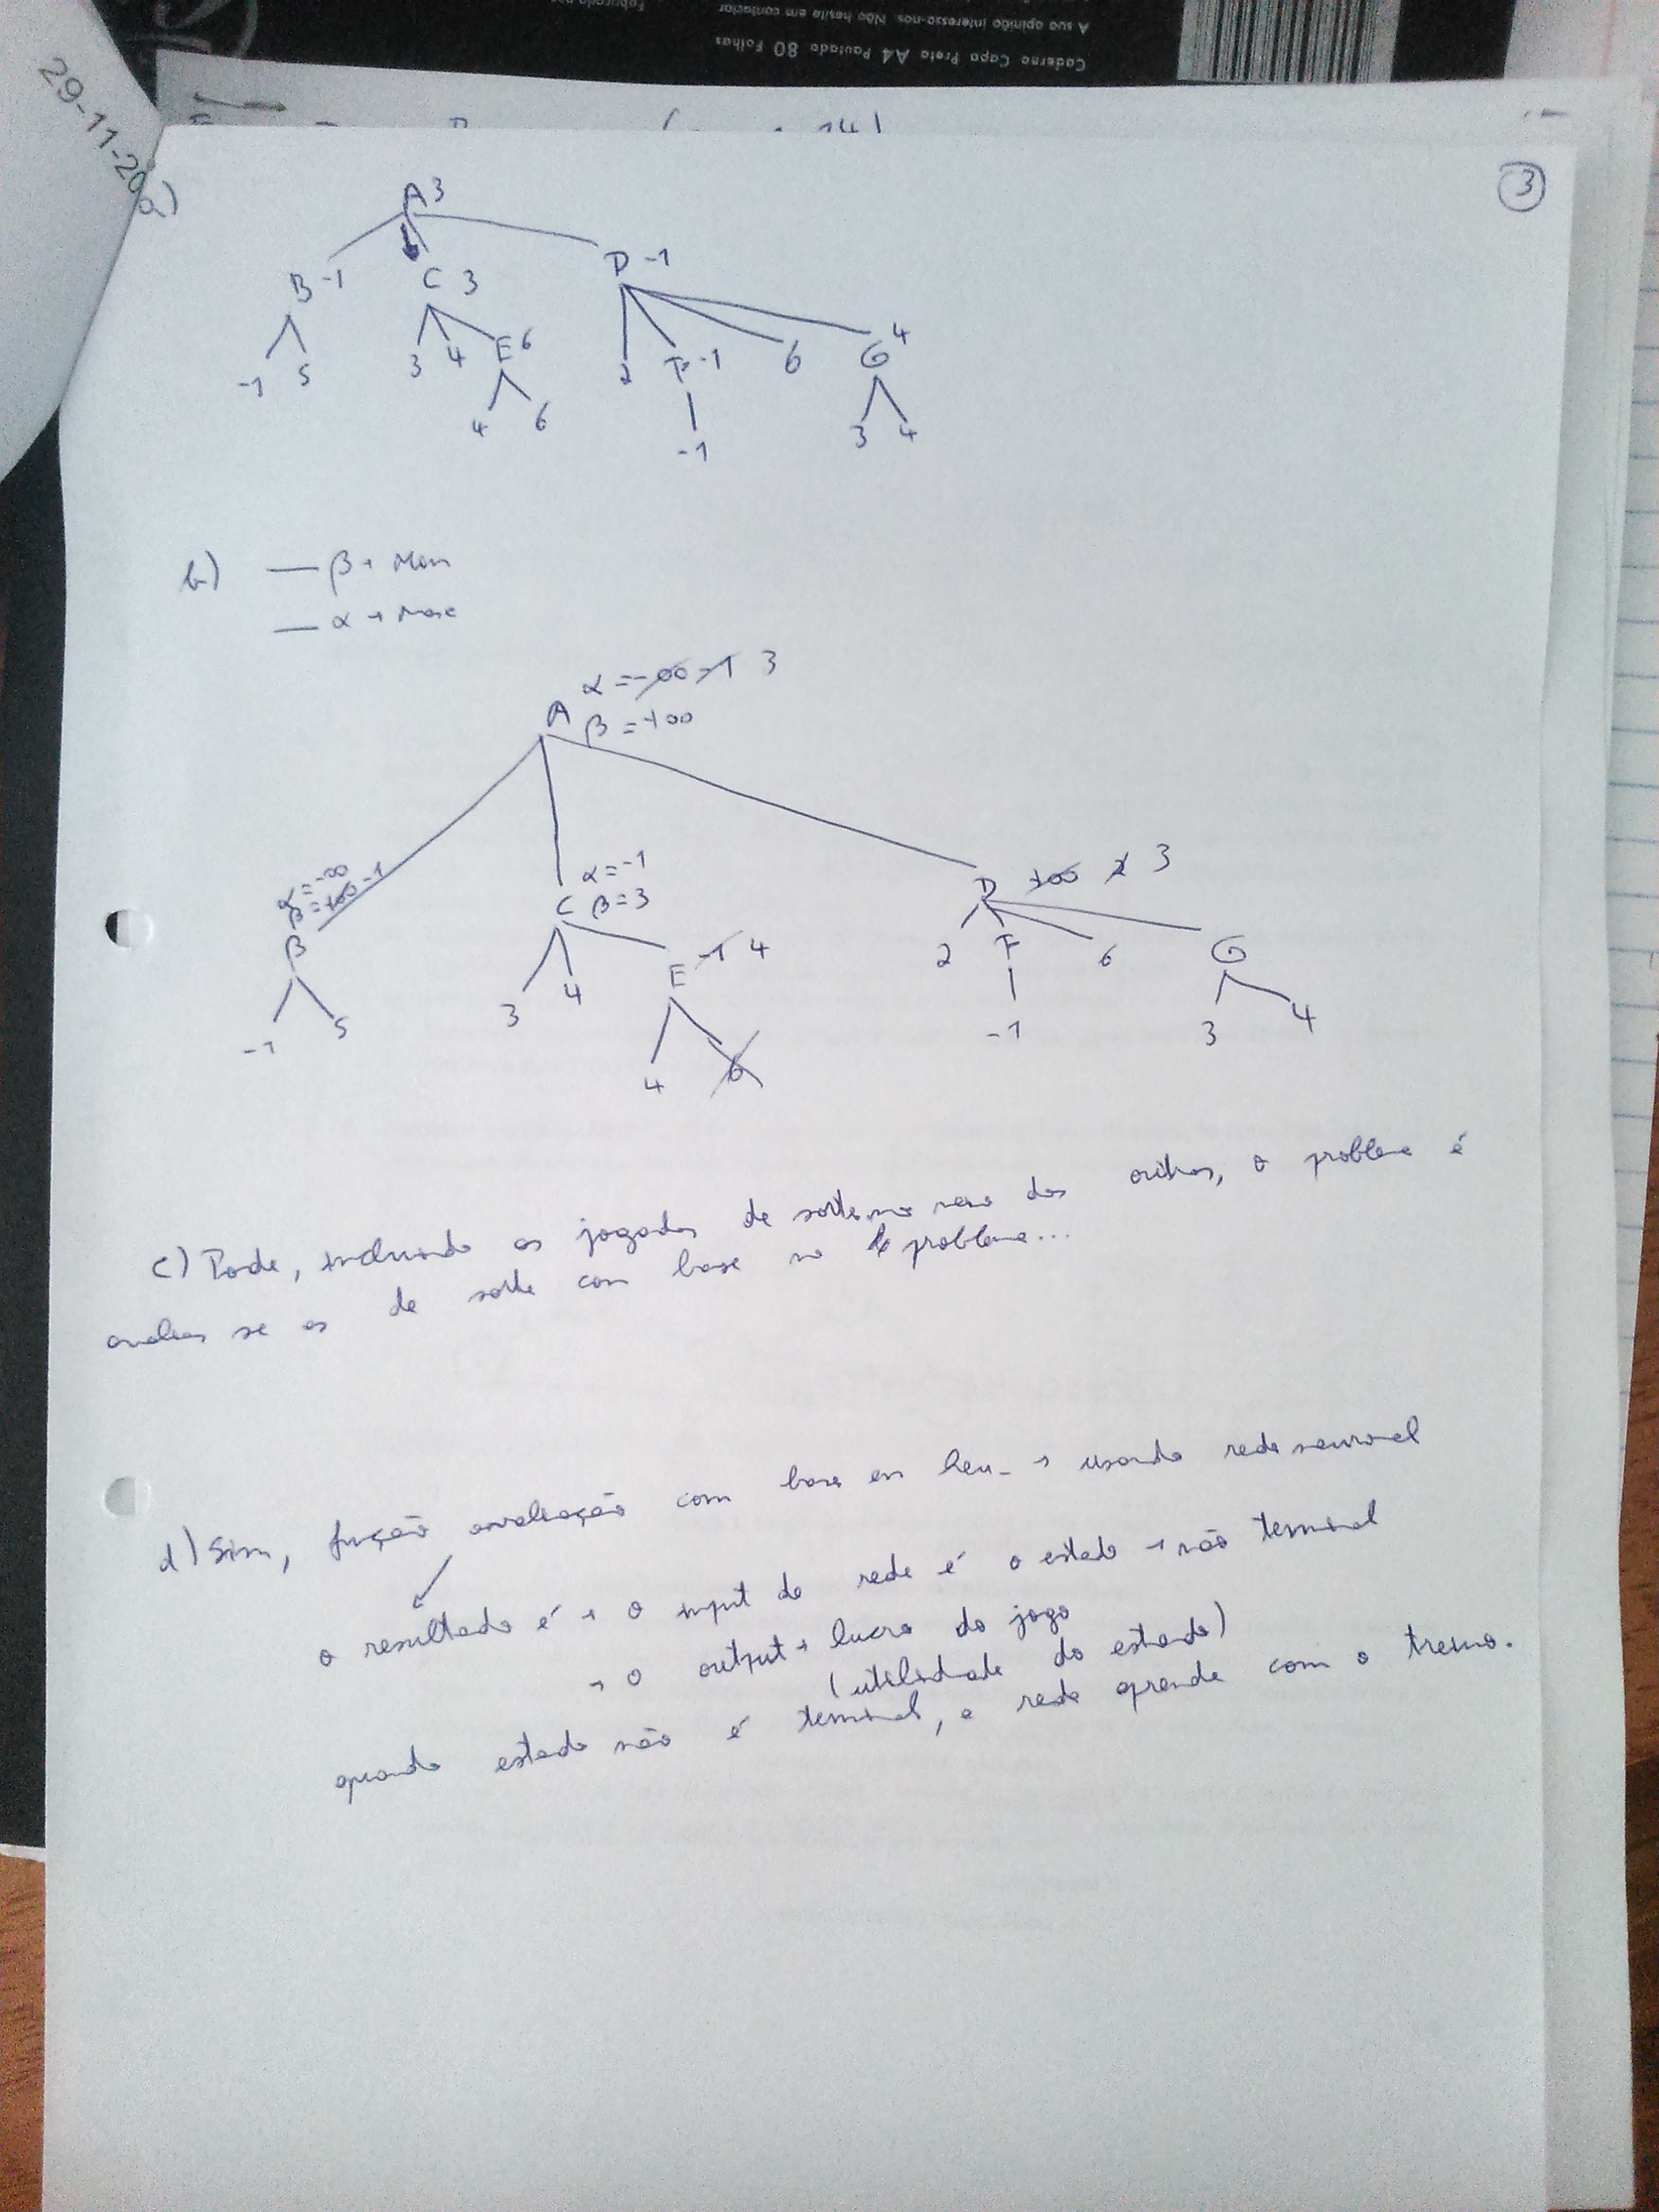 Caderno Capa Preta A4 Pautado 80 Folhas
A sua opinião interessa-nos. Não hesite em contactar
29-11-20
3
a)
A 3
B -1 C 3 D -1
-1 5 3 4 E 6 2 F -1 6 G 4
4 6 -1 3 4
b) — β → Min
— α → Max
α = -∞ -1 3
A β = +∞
α = -∞
β = +∞ -1
B
α = -1
C β = 3
D +∞ 2 3
-1 5 3 4 E -1 4 2 F 6 G
4 6 -1 3 4
c) Pode, incluindo as jogadas de sorte no meio das outras, o problema é
avaliar se as de sorte com base no problema...
d) Sim, função avaliação com base em heu- → usando rede neuronal
o resultado é → o input da rede é o estado → não terminal
→ o output → lucro do jogo
(utilidade do estado)
quando estado não é terminal, a rede aprende com o treino.